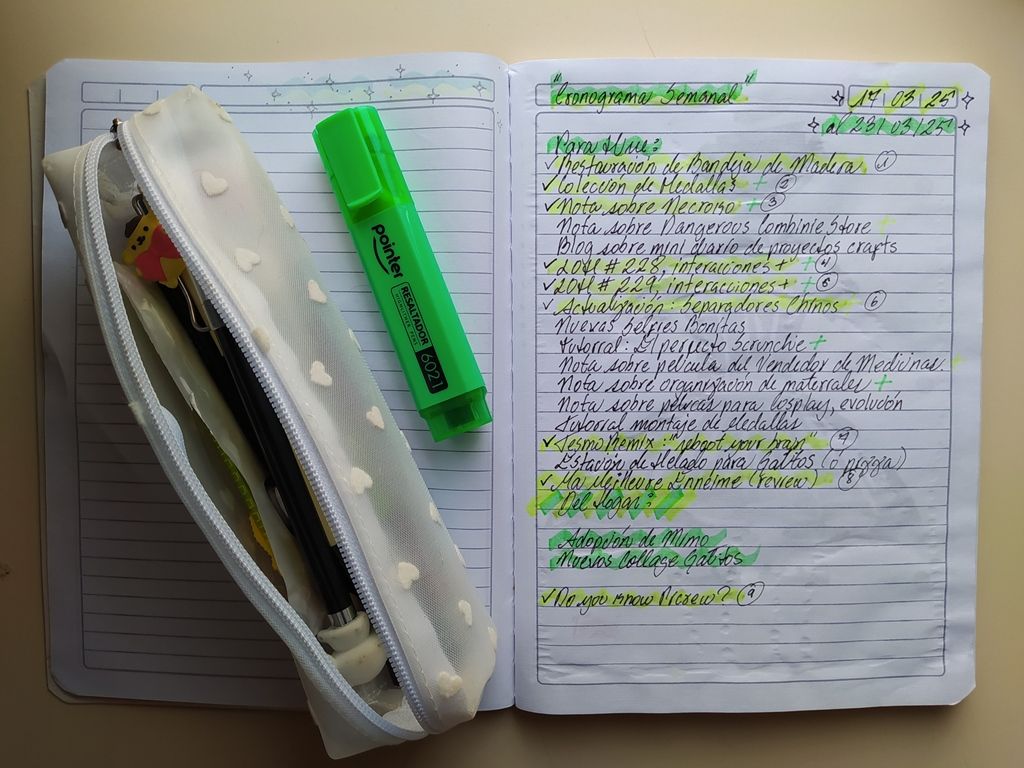 pointer
RESALTADOR
HIGHLIGHTER PENS
6021
"Cronograma Semanal"
17 03 25
al 23 03 25
Para Hive:
✓ Restauración de Bandeja de Madera ①
✓ Colección de Medallas + ②
✓ Nota sobre Necrozo + ③
Nota sobre Dangerous Combinie Store +
Blog sobre mini diario de proyectos crafts
✓ LOH # 228, interaciones + + ④
✓ LOH # 229, interacciones + + ⑤
✓ Actualización: Separadores Chinos ⑥
Nuevas Selfies Bonitas
Tutorial: El perfecto Scrunchie +
Nota sobre película del Vendedor de Medicinas. +
Nota sobre organización de materiales +
Nota sobre pelucas para cosplay, evolución
Tutorial montaje de Medallas
✓ : "reboot your brain" ⑦
Estación de Helado para Gatitos (o pizza)
✓ Ma Meilleure Ennemie (review) ⑧
Del Hogar:
Adopción de Mimo
Nuevos Collage Gatitos
✓ Do you know Picrew? ⑨